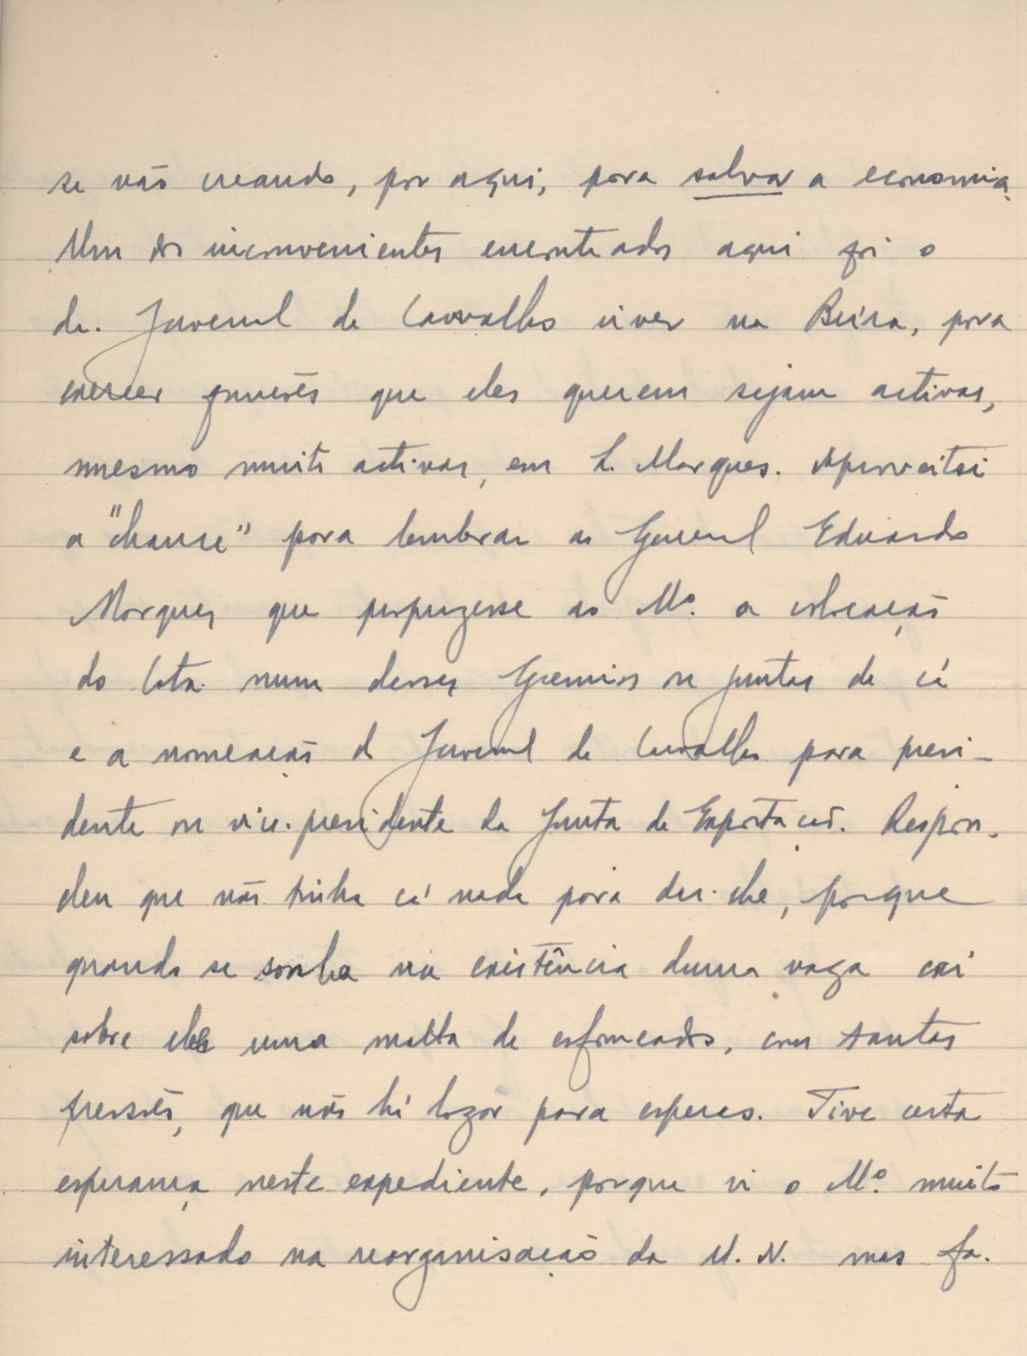 se vão creando, por aqui, para salvar a economia.
Um dos inconvenientes encontrados aqui foi o
de Juvenal de Carvalho viver na Beira, para
exercer funções que eles querem sejam activas,
mesmo muito activas, em L. Marques. Aproveitei
a "chance" para lembrar ao General Eduardo
Marques que propuzesse ao Mº. a colocação
do Cota num desses Gremios ou Juntas de cá
e a nomeação do Juvenal de Carvalho para presi-
dente ou vice-presidente da Junta de Exportação. Respon-
deu que não tinha cá nada para dar-lhe, porque
quando se sonha na existência duma vaga cai
sobre ele uma malta de esfomeados, com tantas
pressões, que não há lugar para esperas. Tive certa
esperança neste expediente, porque vi o Mº. muito
interessado na reorganisação da U. N. mas fa-